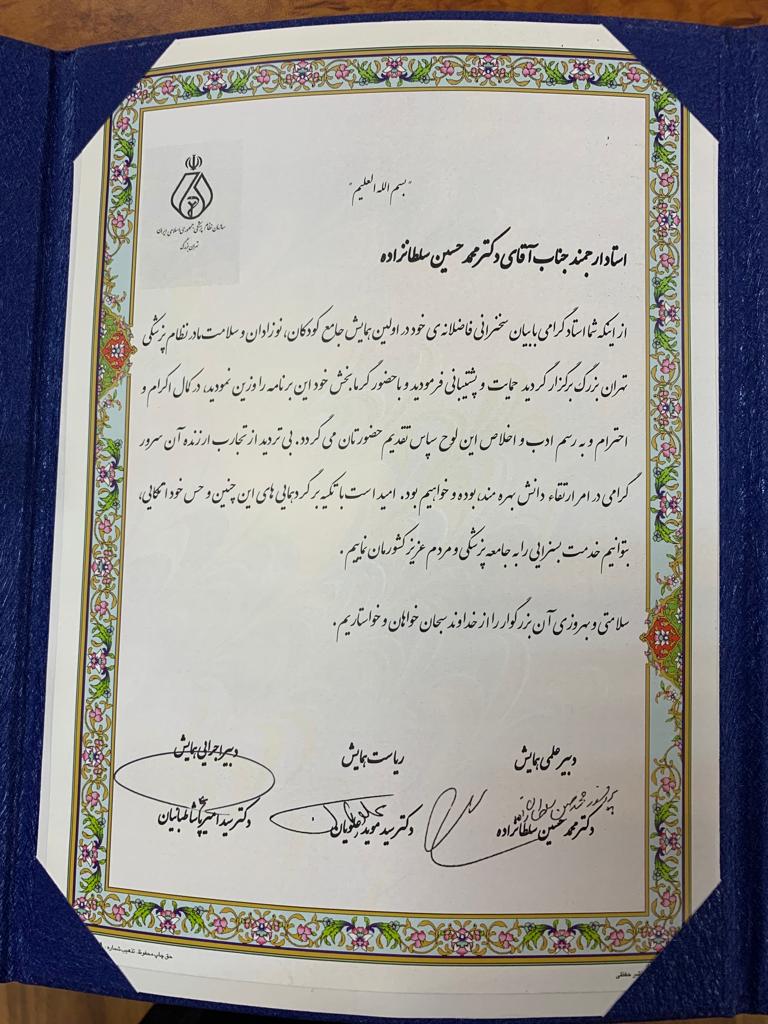 "بسم الله العلیم"
سازمان نظام پزشکی جمهوری اسلامی ایران
تهران بزرگ
استاد ارجمند جناب آقای دکتر محمد حسین سلطانزاده
از اینکه شما استاد گرامی با بیان سخنرانی فاضلانه ی خود در اولین همایش جامع کودکان، نوزادان و سلامت مادر نظام پزشکی
تهران بزرگ برگزار گردید حمایت و پشتیبانی فرمودید و با حضور گرما بخش خود این برنامه را وزین نمودید، در کمال اکرام و
احترام و به رسم ادب و اخلاص این لوح سپاس تقدیم حضورتان می گردد. بی تردید از تجارب ارزنده آن سرور
گرامی در امر ارتقاء دانش بهره مند، بوده و خواهیم بود. امید است با تکیه بر گردهمایی های این چنین و حس خود اتکایی،
بتوانیم خدمت بسزایی را به جامعه پزشکی و مردم عزیز کشورمان نماییم.
سلامتی و بهروزی آن بزرگوار را از خداوند سبحان خواهان و خواستاریم.
دبیر علمی همایش
ریاست همایش
دبیر اجرایی همایش
پروفسور محمد حسین سلطانزاده
دکتر محمد حسین سلطانزاده
دکتر سید موید علویان
دکتر سید امیر پاشا طبائیان
حق چاپ محفوظ. تذهیب شماره